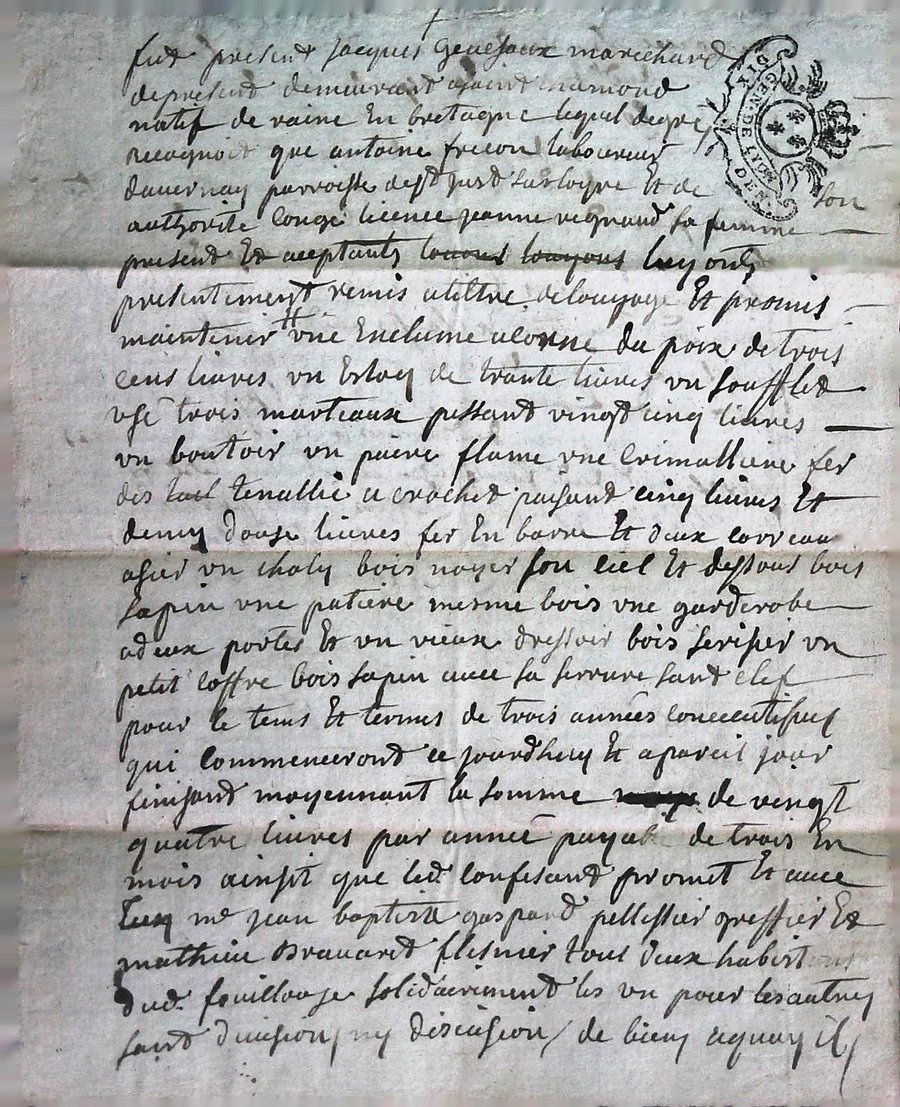 fut present jacques marechard
depresent demeurant asaint chamond
natif de raine En bretagne lequel degre
Recognoit que antoine frecon laboureur
dauernay parroisse de st just surloyre Et de son
authorite conge licence jeanne regnaud sa femme
present Et aceptants louons louyons luy onts
presentement remis atiltre delouyage Et promis
maintenir vne Enclume alonne du poix de trois
cens liures vn Estoq de trante liures vn soufflet
vsé trois marteaux pessant vingt cinq liures
vn boutoir vn paire flame vne Crimalliere fer
des tenallie a crochet paisant cinq liures Et
demy douse liures fer En barre Et deux carreau
asier vn chaly bois noyer son ciel Et dessous bois
sapin vne patiere mesme bois vne garderobe
adeux portes Et vn vieux dressoir bois serisier vn
petit coffre bois sapin auec sa serrure sant clef
pour le tems Et termes de trois années conceutifues
qui commenceront ce jourdhuy Et apareil jour
finisant moyennant la somme de vingt
quatre liures par année payable de trois En
mois ainsit que led. confesant promet Et auec
luy me jean baptiste gaspard pellissier greffier Et
mathieu Brauard tous deux habistans
dud. fouillouse solidairement les vn pour les autres
sant diuision ny discusion de biens aquoy ils
DIX DEN.
GEN. DE LYON